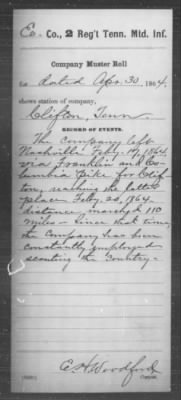 Co. Co., 2 Reg't Tenn. Mtd. Inf.
Company Muster Roll
for dated Apr. 30, 1864.
shows station of company,
Clifton, Tenn
RECORD OF EVENTS.
The Company left
Nashville Feby. 1864
via Franklin and Co-
lumbia Pike for Clif-
ton, reaching the latter
place Feby. 1864
distance marched 110
miles - since that time
the Company has been
constantly employed
scouting the Country -
Woodford
Copyist.